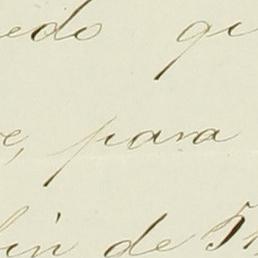 edo qu
e, para
fin de 5